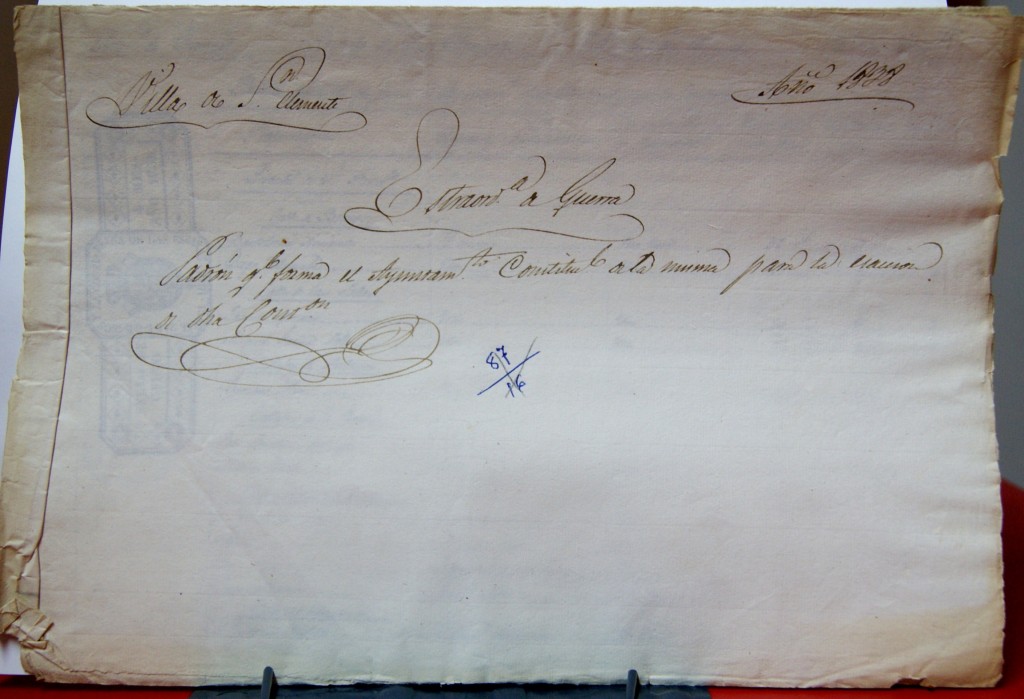 Villa de S.n Clemente
Año 1838
Estraord.a de Guerra
Padrón q.e forma el Ayuntam.to Constitu.l de la misma para la esaccion
de dha Cont.on
87
16